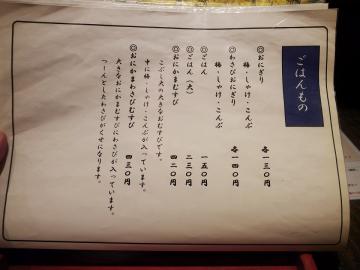 ごはんもの
◎おにぎり 各一三〇円
梅・しゃけ・こんぶ
◎わさびおにぎり 各一四〇円
梅・しゃけ・こんぶ
◎ごはん 一五〇円
◎ごはん(大) 二三〇円
◎おにかまむすび 四二〇円
こぶし大の大きなおむすびです。
中に梅・しゃけ・こんぶが入っています。
◎おにかまわさびむすび 四三〇円
大きなおにかまむすびにわさびが入っています。
つーんとしたわさびがくせになります。